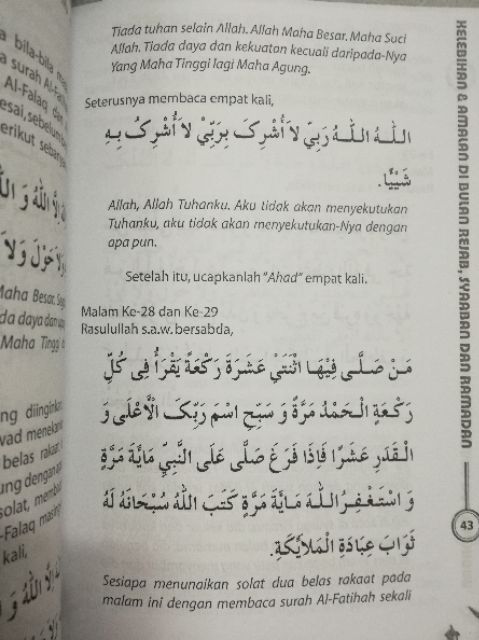 Tiada tuhan selain Allah. Allah Maha Besar. Maha Suci
Allah. Tiada daya dan kekuatan kecuali daripada-Nya
Yang Maha Tinggi lagi Maha Agung.
Seterusnya membaca empat kali,
اَللهُ اللهُ رَبِّيْ لَا أُشْرِكَ بِرَبِّيْ لَا أُشْرِكُ بِهِ
شَيْئًا.
Allah, Allah Tuhanku. Aku tidak akan menyekutukan
Tuhanku, aku tidak akan menyekutukan-Nya dengan
apa pun.
Setelah itu, ucapkanlah "Ahad" empat kali.
Malam Ke-28 dan Ke-29
Rasulullah s.a.w. bersabda,
مَنْ صَلَّى فِيْهَا اثْنَتَيْ عَشَرَةَ رَكْعَةً يَقْرَأُ فِى كُلِّ
رَكْعَةٍ الْحَمْدُ مَرَّةً وَ سَبِّحِ اسْمَ رَبِّكَ الْأَعْلَى وَ
الْقَدَرِ عَشْرًا فَإِذَا فَرَغَ صَلَّى عَلَى النَّبِيِّ مِايَّةَ مَرَّةٍ
وَ اسْتَغْفِرُ اللهَ مَايَةَ مَرَّةٍ كَتَبَ اللهُ سُبْحَانَهُ لَهُ
ثَوَابَ عِبَادَةِ الْمَلَايِٕكَةِ.
Sesiapa menunaikan solat dua belas rakaat pada
malam ini dengan membaca surah Al-Fatihah sekali
KELEBIHAN & AMALAN DI BULAN REJAB, SYAABAN DAN RAMADAN
43